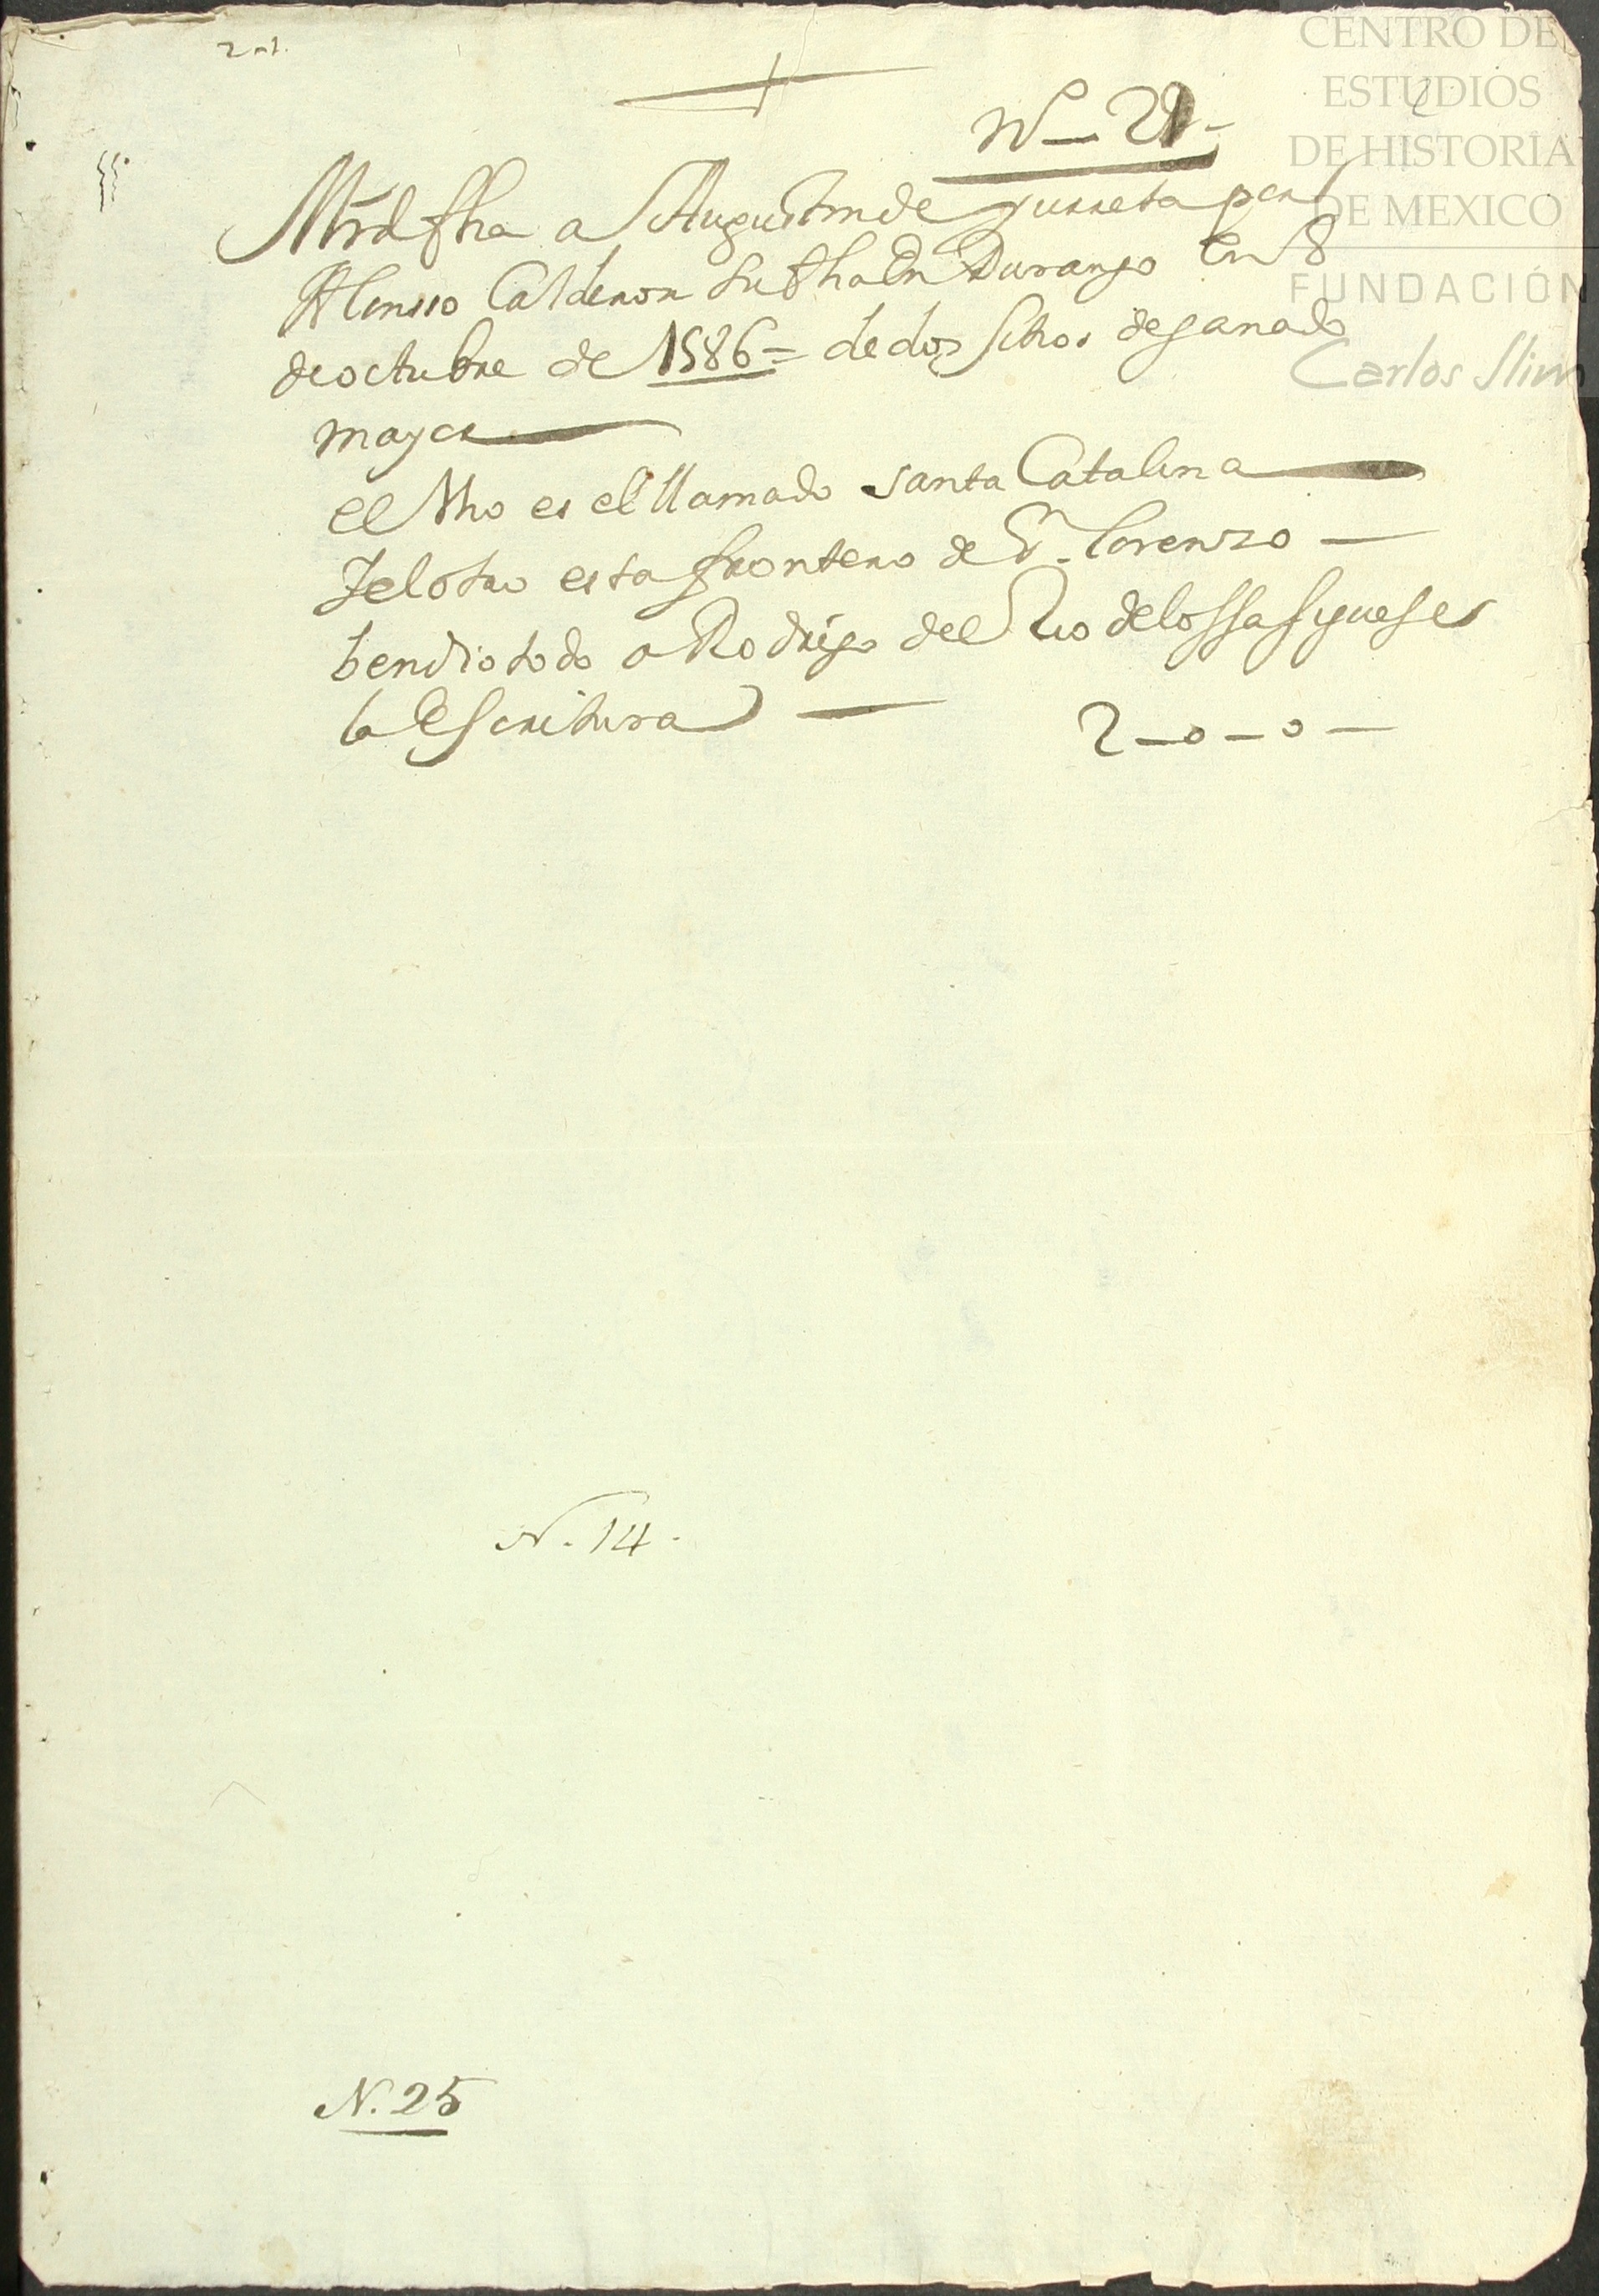 2-1.
Nº - 21 -
Mrd fha a Augustin de yurreta por
Alonsso Calderon su fha En Durango En 8
de octubre de 1586 = de dos sitios de ganado
mayor
el Uno es el llamado santa Catalina
Y el otro esta frontero de S. lorenzo
bendio todo a Rodrigo del Rio de lossa siguese
la Escritura
2 - o - o -
N. 14.
N. 25
CENTRO DE
ESTUDIOS
DE HISTORIA
DE MEXICO
FUNDACIÓN
Carlos Slim